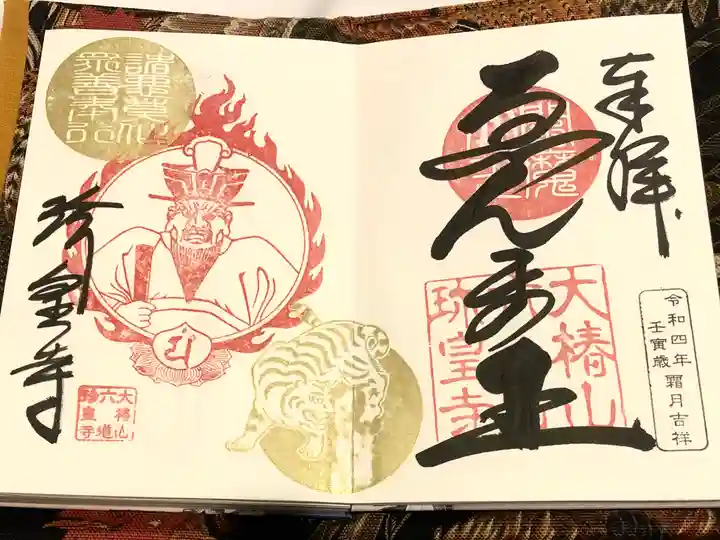 奉拝
ゑんま王
閻魔
大椿山
珎皇寺
令和四年霜月吉祥
壬寅歳
諸悪莫作
衆善奉行
珎皇寺
大椿山
六道
珍皇寺